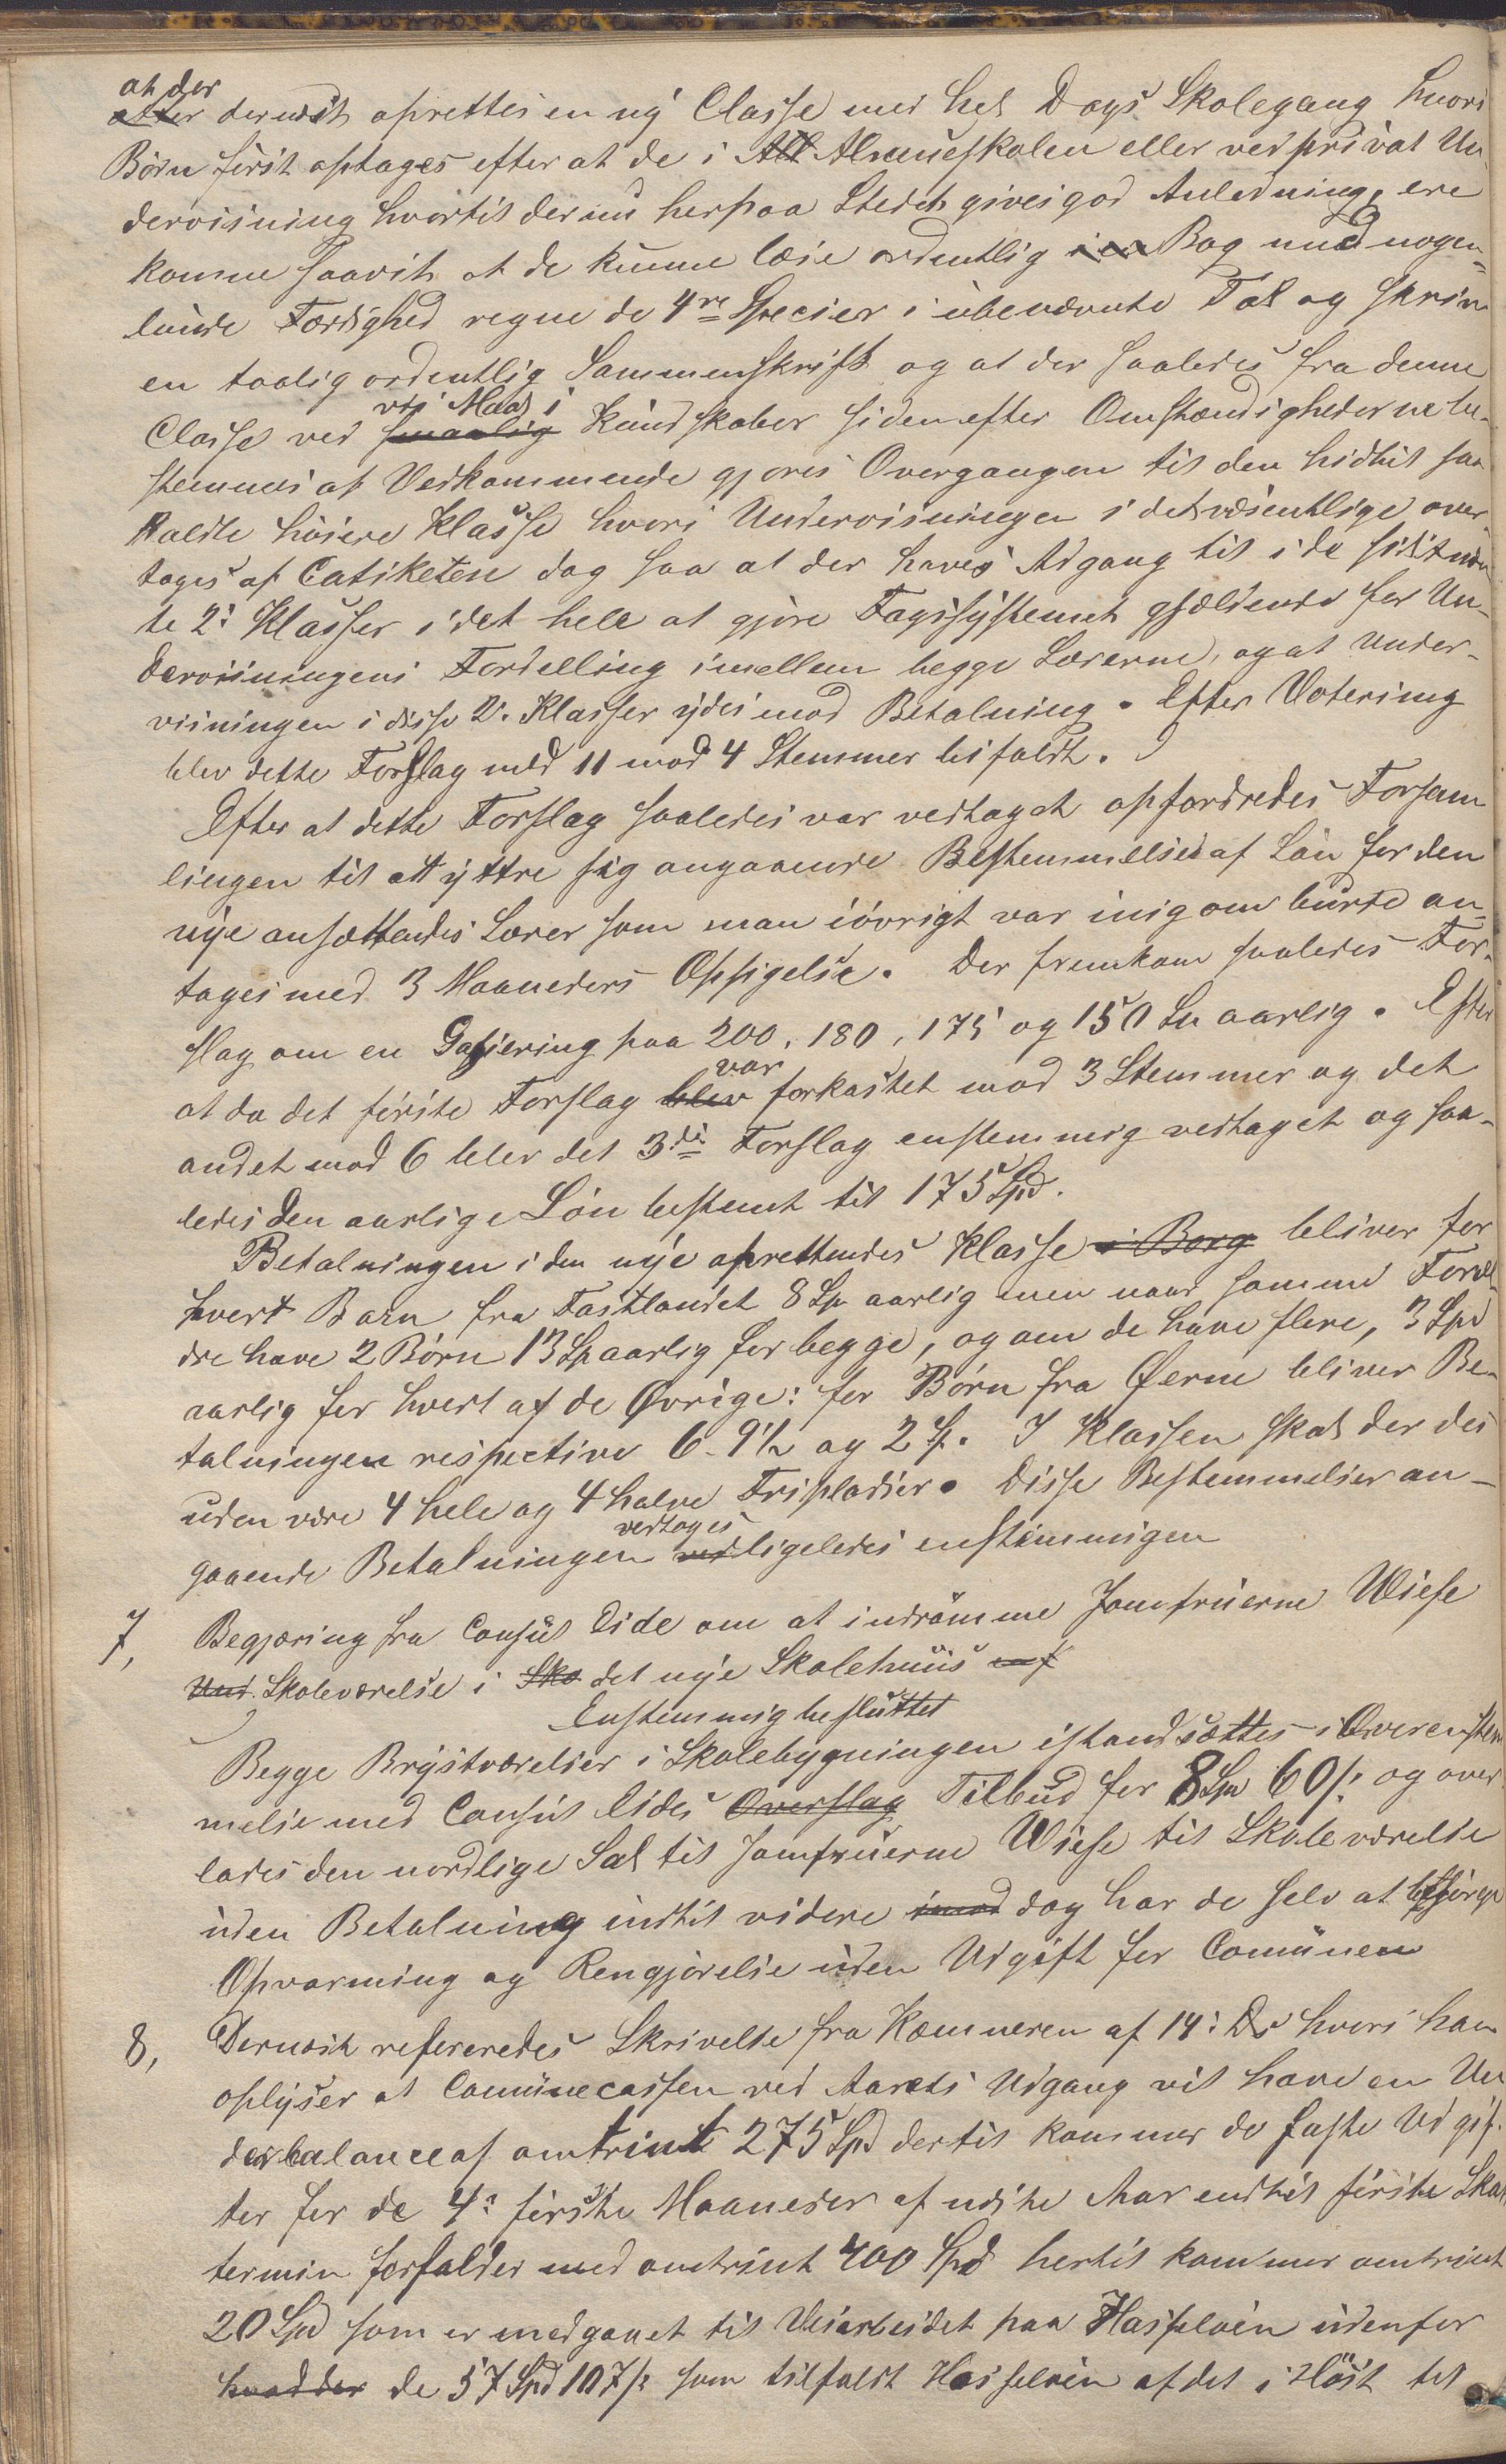 at der
~~atter~~ dernæst oprettes en ny Classe med hel Dags Skolegang hvori
Børn først optages efter at de i ~~All~~ Almueskolen eller ved privat Un-
dervisning hvortil der nu herpaa Stedet gives god Anledning, ere
komne saavidt at de kunne læse ordentlig i en Bog med nogen-
lunde Færdighed regne de 4re Specier i ubenævnte Tal og skrive
en taalig ordentlig Sammenskrift og at der saaledes fra denne
vis Maal i
Classe ved ~~smaalig~~ Kundskaber siden efter Omstændighederne be-
stemmes af Vedkommende gjøres Overgangen til den hidtil saa
kaldte høiere Klasse hvori Undervisningen i det væsentlige over-
tages af Catiketen dog saa at der haves Adgang til i de sidstnævn
te 2: Klasser i det hele at gjøre Fagsystemet gjældende for Un-
dervisningens Fordelling imellem begge Lærerne, og at Under-
visningen i disse 2: Klasser ydes mod Betalning. Efter Votering
blev dette Forslag med 11 mod 4 Stemmer bifaldt.
Efter at dette Forslag saaledes var vedtaget opfordredes Forsam
lingen til at yttre sig angaaende Bestemmelse af Løn for den
nye ansættendes Lærer som man iøvrigt var enig om burde an-
tages med 3 Maaneders Opsigelse. Der fremkom saaledes For-
slag om en Gasjering paa 200, 180, 175 og 150 Sp aarlig. Efter
var
at da det første Forslag ~~blev~~ forkastet mod 3 Stemmer og det
andet mod 6 blev det 3die Forslag enstemmig vedtaget og saa-
ledes den aarlige Løn bestemt til 175 Spd.
Betalningen i den nye oprettendes Klasse ~~i Borg~~ bliver for
hvert Barn fra Fastlandet 8 Sp aarlig men naar samme Foræl
dre have 2 Børn 13 Sp aarlig for begge, og om de have flere, 3 Spd
aarlig for hvert af de Øvrige: for Børn fra Øerne bliver Be-
talningen respective 6 - 9½ og 2 Sp. I Klassen skal der des
uden være 4 hele og 4 halve Fripladser. Disse Bestemmelser an-
vedtoges
gaaende Betalningen ~~ved~~ ligeledes enstemmigen
7, Begjæring fra Consul Eide om at indrømme Jomfruerne Wiese
~~Und~~ Skoleværelse i ~~Sko~~ det nye Skolehuus
Enstemmig besluttet
Begge Brystværelser i Skolebygningen istandsættes i Overenstem
melse med Consul Eides ~~Overslag~~ Tilbud for 8 Spd 60 s: og over
lades den nordlige Sal til Jomfruerne Wiese til Skoleværelse
uden Betalning indtil videre ~~imod~~ dog har de selv at besørge
Opvarming og Rengjørelse uden Udgift for Comünen
8, Dernæst refereredes Skrivelse fra Kæmneren af 14: Ds hvori han
oplyser at Comünecassen ved Aarets Udgang vil have en Un
derbalance af omtrint 275 Spd dertil kommer de faste Udgif-
ter for de 4: første Maaneder af næste Aar endtil første Skat
termin forfalder med omtrint 400 Spd hertil kommer omtrint
20 Spd som er medgaaet til Veiarbeidet paa Hasseløen udenfor
~~hvad der~~ de 57 Spd 107 s: som tilfaldt Hasseløen af det i Høst til